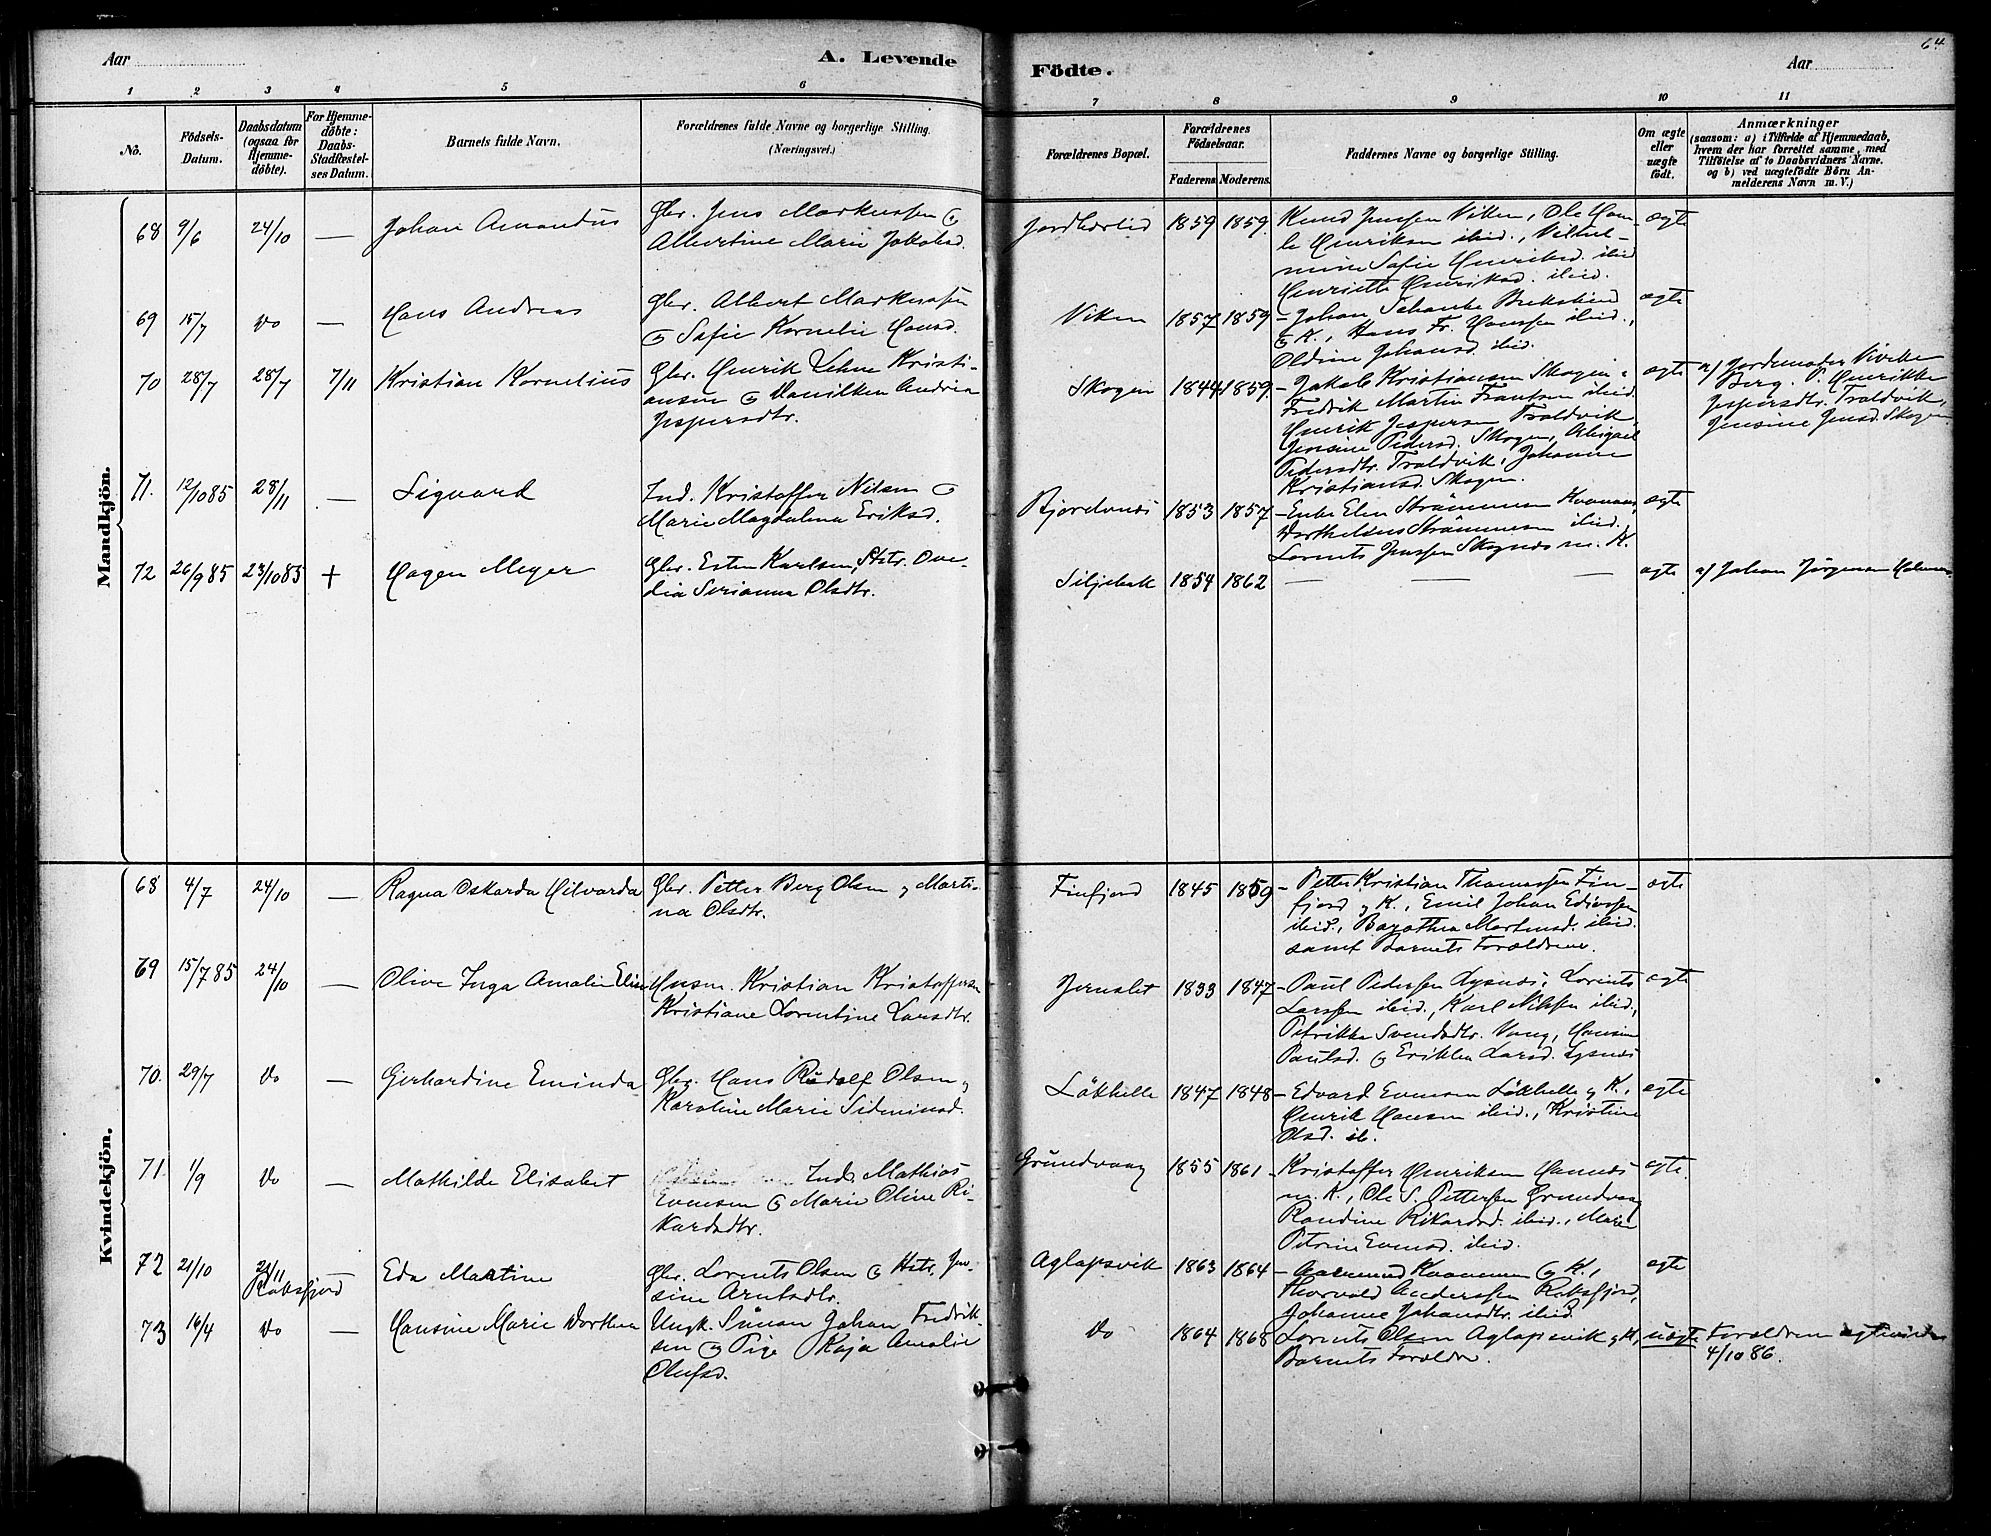 64
Aar
A. Levende
Födte.
Aar
1 2 3 4 5 6 7 8 9 10 11
No.
Födsels-
Datum.
Daabsdatum
(ogsaa for
Hjemme-
döbte).
For Hjemme-
döbte:
Daabs-
Stadfæstel-
ses Datum.
Barnets fulde Navn.
Forældrenes fulde Navne og borgerlige Stilling.
(Næringsvei.)
Forældrenes Bopæl.
Forældrenes
Födselsaar.
Faderens Moderens.
Faddernes Navne og borgerlige Stilling.
Om ægte
eller
uægte
födt.
Anmærkninger
(saasom: a) i Tilfælde af Hjemmedaab,
hvem der har forrettet samme, med
Tilföielse af to Daabsvidners Navne.
og b) ved uægtefödte Börn An-
melderens Navn m. V.)
Mandkjön.
68 9/6 24/10 — Johan Amandus
Gbr. Jens Markussen og
Albertine Marie Jakobsd.
1859 1859.
Knud Jenssen Viken, Ole Ham-
le Henriksen ibid., Vilhel-
mine Sofie Henriksd. ibid
Henriette Henriksd. ibid.
ægte
69 15/7 Do — Hans Andreas
Gbr. Albert Markussen
og Sofie Kornelie Hansd.
Viken 1857 1859
- Johan Schanke
og K., Hans Fr. Hanssen ibid.,
Oldine Johansd. ibid.
ægte
70 28/7 28/7 7/11 Kristian Kornelius
Gbr. Henrik Lehn Kristi-
ansen og Danilken Andrea
Jespersdtr.
Skogen 1844 1859.
- Jakob Kristiansen Skogen,
Fredrik Martin Frantsen ibid.
Henrik Jespersen Traldvik
Jensine Pedersd. Skogen, Abigael
Pedersdtr. Traldvik, Johanne
Kristiansd. Skogen.
ægte
af Jordemoder Vivike
Berg. T. Henrikke
Jespersdtr. Traldvik,
Jensine Jensd. Skogen
71. 12/10 85 28/11 — Sigvard
Ind. Kristoffer Nilsen og
Marie Magdalena Eriksd.
1853 1857
- Enke Elen Strömmesen
Dorthea Strömmesen ibid.
Lorents Jenssen Skognæs m. K.
ægte
72 26/9 85 23/10 85 + Hagen Meyer
Gbr. Esten Karlsen, Hstr. Ove-
dia Serianna Olsdtr.
Siljebak 1854 1862 — — —
ægte
af Johan Jörgensen
Kvindekjön.
68 4/7 24/10 — Ragna Oskarda Hilvarda
Gbr. Petter Berg Olsen og Marti-
na Olsdtr.
Finfjord 1845 1859
- Petter Kristian Thomassen Fin-
fjord og K., Emil Johan Edvardsen
ibid., Martinsd. ibid.
samt Barnets Forældrene.
ægte
69 15/7 85 24/10 — Olive Inga Amalie Elise
Husm. Kristian Kristoffersen
Kristiane Lorentine Larsdtr.
Jernslet 1833 1847
- Paul Pedersen Lysnæs, Lorents
Larssen ibid., Karl Nilssen ibid.,
Petrikke Svendsdtr. Vang, Hansine
Paulsd. og Erikka Larsd. Lysnæs
ægte
70. 29/7 Do — Gerhardine Eminda
Gbr. Hans Rudolf Olsen og
Karoline Marie Simensd.
Løkhelle 1847 1848
- Edvard Evensen Løkhelle og K.,
Henrik Hansen ibid., Kristine
Olsd. ib.
ægte
71. 1/9 Do — Mathilde Elisabet
Ind. Mathias
Evensen og Marie Oline Ri-
kardsdtr.
Grundvaag 1855 1861
- Kristoffer Henriksen Hamnæs
m. K., Ole S. Pettersen Grundvaag
Randine Rikardsd. ibid., Marie
Petrine Evensd. ibid.
ægte.
72 21/10 21/11 Eda Martine
Gbr. Lorents Olsen og Hstr. Jen-
sine Arntsdtr.
Aglapsvik 1863 1864
og K.,
Thorvald Anderssen Roksfjord,
Johanne Johansdtr. ibid.
ægte
73 16/4 Do — Hansine Marie Dorthea
Ungk. Simon Johan Fredrik-
sen og Pige Kaja Amalie
Olufsd.
Do 1864 1868
Lorents Olsen Aglapsvik og K,
Barnets Forældre.
uægte
Forældrene ægteviede
4/10 86.